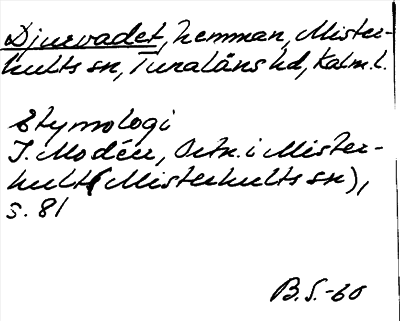 Djurvadet, hemman, Mister-
hults sn, Tunaläns hd, Kalm. l.
Etymologi
I. Modéer, Ortn. i Mister-
hult (Misterhults sn),
s. 81
B.S.-60